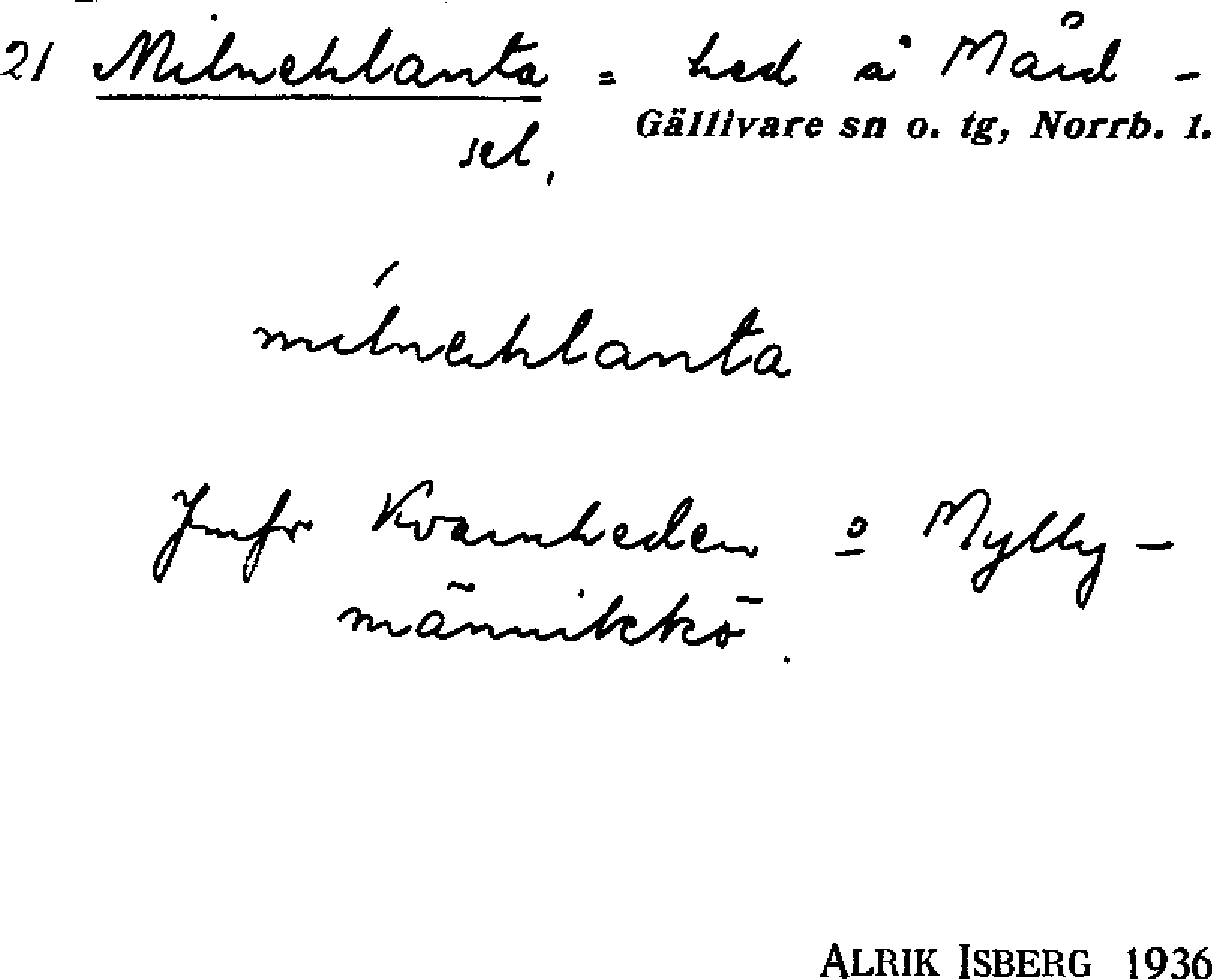 21 Milnehlanta = hed å Mård-
Gällivare sn o. tg, Norrb. l.
sel.
milnehlanta
Jmfr Kvarnheden o Mylly-
männikkö.
ALRIK ISBERG 1936